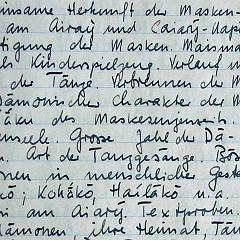 insame Herkunft der Masken-
am Aiarý und Caiarý-Uap
tigung der Masken. Maismas
ls Kinderspielzeug. Verlauf u
der Tänze. Verbrennen der M
Dämonische Charakter der M
áku des Maskenjenseits.
enseele. Grosse Zahl der Dä-
n. Art der Tanzgesänge. Bös
onen in menschliche Gesta
kö; Kohákö, Hailákö u. a.
i am Aiarý. Textproben.
ämonen, ihre Heimat, Tän